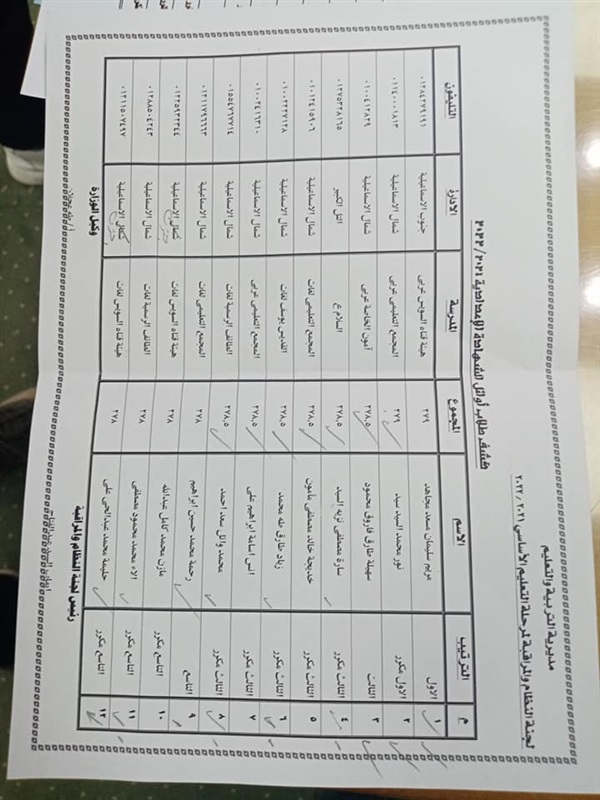 مديرية التربية والتعليم
لجنة النظام والمراقبة لمرحلة التعليم الأساسي ٢٠٢١ / ٢٠٢٢
كشف طلاب أوائل الشهادة الإعدادية ٢٠٢٢/٢٠٢١
م الترتيب الاسم المجموع المدرسة الادارة التليفون
١ الاول مريم سليمان سعد مجاهد ٢٧٩ هيئة قناه السويس عربى جنوب الاسماعيلية ٠١٢٨٤٢٧٩١٩١
٢ الاول مكرر نور محمد السيد سيد ٢٧٩ المجمع التعليمى عربى شمال الاسماعيلية ٠١١٤٠٠٠١٨١٣
٣ الثالث سهيلة طارق فاروق محمود ٢٧٨.٥ آمون الخاصة عربى شمال الاسماعيلية
٤ الثالث مكرر سارة مصطفى نزيه السيد ٢٧٨.٥ السلام ع التل الكبير ٠١٢٧٥٣٢٨١٦٥
٥ الثالث مكرر خديجة خالد مصطفى مامون ٢٧٨.٥ المجمع التعليمى لغات شمال الاسماعيلية ٠١٠١٢٤١٥٩٠٦
٦ الثالث مكرر زياد طارق طه محمد ٢٧٨.٥ القديس يوسف لغات شمال الاسماعيلية ٠١٠٠٢٢٢٧١٢٨
٧ الثالث مكرر انس اسامة ابراهيم على ٢٧٨.٥ المجمع التعليمى عربى شمال الاسماعيلية ٠١٠٠٢٤١٦٣١٠
٨ الثالث مكرر محمد وائل سعد احمد ٢٧٨.٥ الطائف الرسمية لغات شمال الاسماعيلية ٠١٥٥٤٧٦٧٧١٤
٩ التاسع رحمة محمد حسين ابراهيم ٢٧٨ المجمع التعليمى لغات شمال الاسماعيلية ٠١٢١١٧٩٦٦٦٣
١٠ التاسع مكرر مازن محمد كامل عبدالله ٢٧٨ هيئة قناه السويس لغات شمال الاسماعيلية ٠١٢٢٥٩٣٢٣٤٤
١١ التاسع مكرر الاء محمد محمود مصطفى ٢٧٨ الطائف الرسمية لغات شمال الاسماعيلية ٠١٢٨٨٥٠٤٢٤٣
١٢ التاسع مكرر حليمة محمد عبدالحى على ٢٧٨ هيئة قناه السويس لغات شمال الاسماعيلية ٠١٢١١٥٠٧٤٩٧
رئيس لجنة النظام والمراقبة وكيل الوزارة